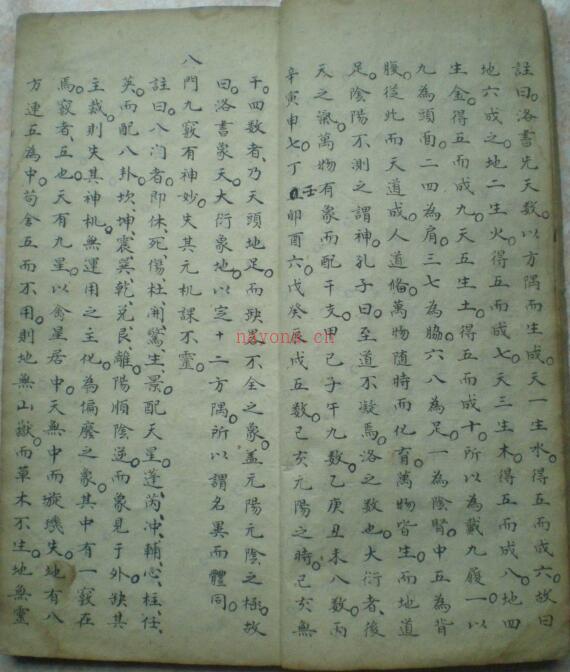 註曰。洛書先天数。以方隅而生成。天一生水。得五而成六。故曰
地六成之。地二生火。得五而成七。天三生木。得五而成八。地四
生金。得五而成九。天五生土。得五而成十。所以為戴九履一。以
九為頭面。二四為肩。三七為脇。六八為足。一為陰腎。中五為背
腹。從此而天道成。人道俻。萬物随時而化育。萬物皆生。而地道
足。陰陽不測之謂神。孔子曰。至道不凝焉。洛之数也。大衍者。後
天之氣。萬物有象。而配干支。甲己子午九数。乙庚丑未八数。丙
辛寅申七。丁壬卯酉六。戊癸辰戌五数。己亥元陽之時。己亥無
干。四数者。乃天頭地足。而缺畧不全之象。盖元陽元陰之極。故
曰。洛書象天。大衍象地。以定十二方隅。所以謂名異而體同。
八門九竅有神妙。失其元机課不靈。
註曰。八门者。即休、死、傷、杜、開、驚、生、景。配天星。蓬、芮、冲、輔、心、柱、任、
英。而配八卦。坎、坤、震、巽、乾、兑、艮、離。陽順陰逆。而象見于外。缺其
主裁。則失其神机。無運用之主化。為偏廢之象。其中有一竅在
焉。竅者。五也。天有九星。以禽星居中。天無中而璇璣失。地有八
方連五為中。苟舍五而不用。則地無山嶽。而草木不生。地無靈
nayona.cn